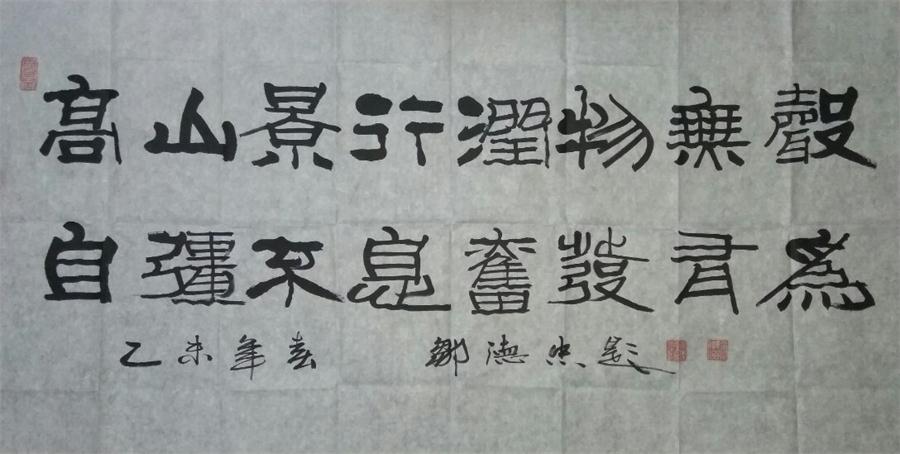 高山景行潤物無聲
自彊不息奮發有為
乙未年春 鄒德忠題